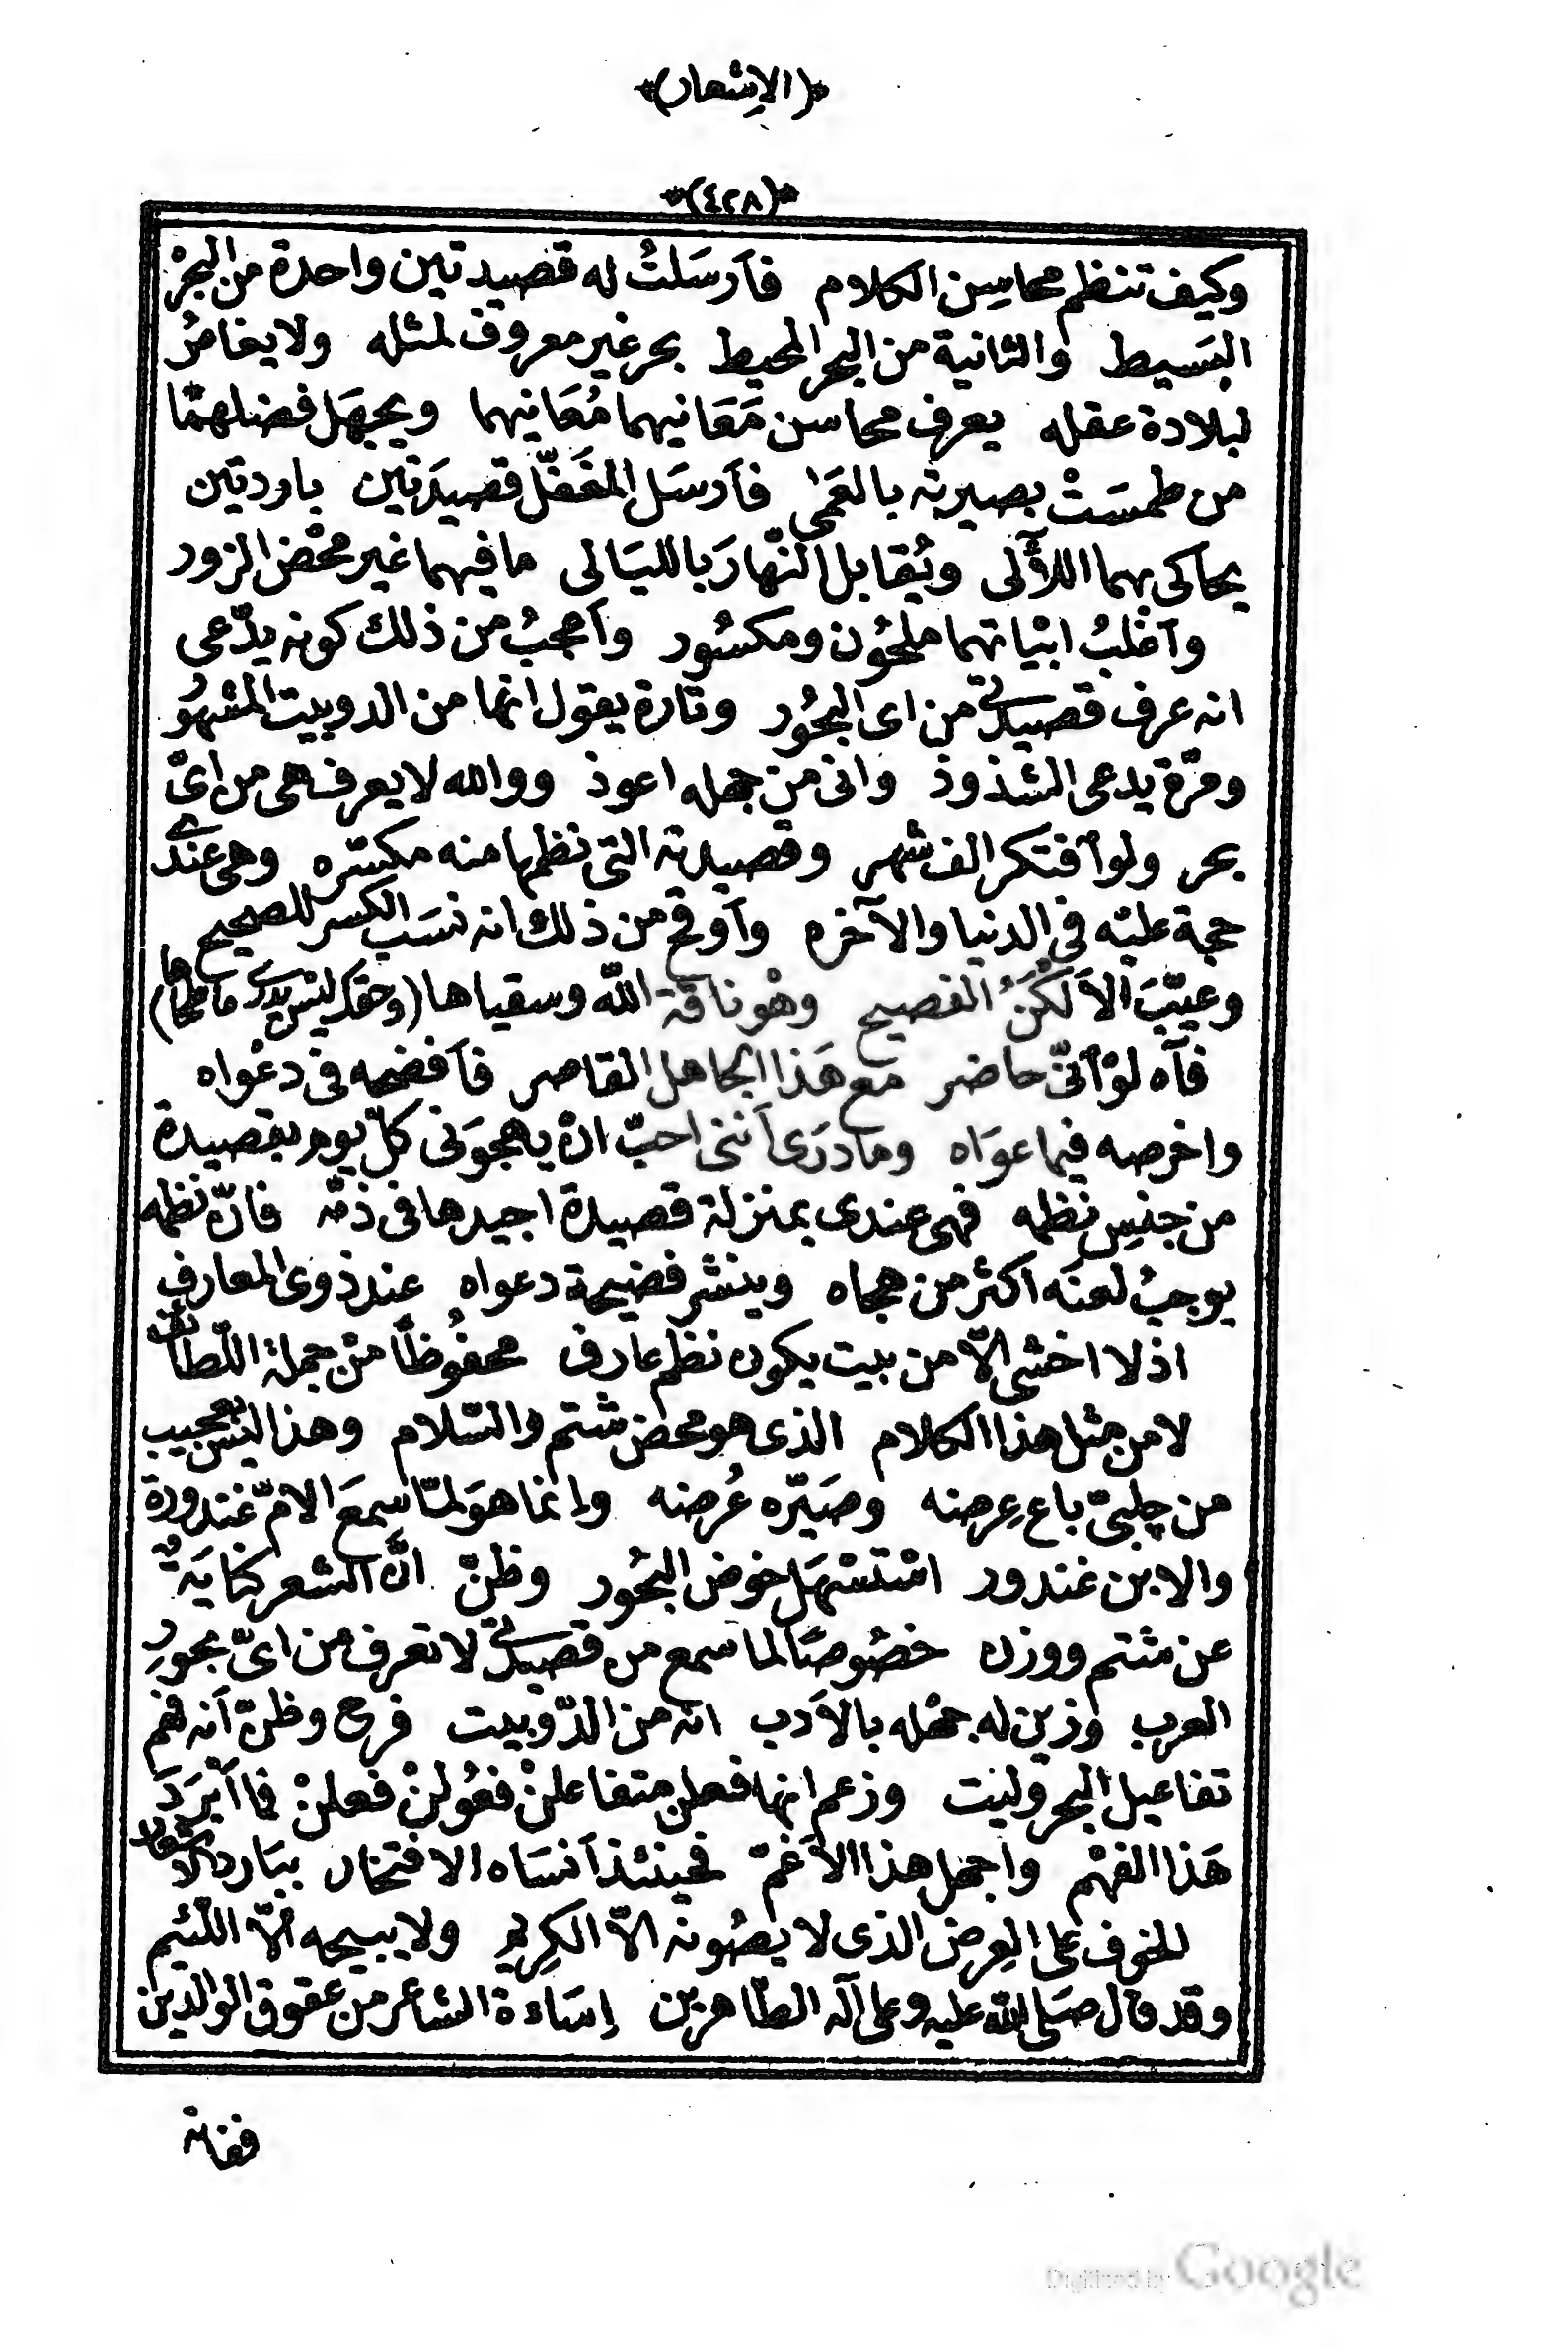 ﴿الاِشعار﴾
﴿٤٢٨﴾
وكيف تنظم محاسِن الكلام فاَرسَلتُ له قصيدتين واحدة من البحْرْ
البَسيط والثانية من البحر المحيط بحر غير معروف لمثله ولا يغامرُ
لبلادة عقله يعرف محاسن مَعَانيهما مُعَانيهما ويجهَل فضلهمَا
من طمسَتْ بصيرته بالعَمى فاَرسَل المغَفّل قصيدَتين باردتين
يحاكى بهما اللآلى ويُقابل النّهارَ بالليَالى ما فيهما غير محْض الزور
وآغلبُ ابْياتهما ملحُون ومكسُور وآعجبُ من ذلك كونه يدّعى
انه عرف قصيدتى من اى البحُور وتارة يقول انها من الدوبيت المشهُو
ومرّة يدعى الشذوذ وانى من جهله اعوذ ووالله لا يعرف هى من اىّ
بحر ولو اَفتكر الف شهر وقصيدته التى نظمها منه مكسّره وهى عندى
حجة عليْه فى الدنيا والآخره وآوقح من ذلك انه نسَب الكسر للصحيح
وعيّبَ الاَلكَنُ الفصيح وهْو ناقة اللّه وسقياها (وحقك ليْس يدرى ما طحاها)
فآه لوْ اَنّى حاضر مع هَذا الجاهل القاصر فاَفضحه فى دعْواه
واخرصه فيما عوَاه وما درَى اَننى احبّ انْ يهجوَنى كلّ يوم بقصيدة
من جنسِ نظمه فهى عندى بمنزلة قصيدة اجيدها فى ذمّه فانّ نظمه
يوجبُ لعنَه اكثر من هجاه وينشر فضيحة دعواه عند ذوى المعارف
اذ لا اخشى الاّ من بيت يكون نظم عارف محفُوظاً منْ جملة اللّطائف
لا من مثل هذا الكلام الذى هو محض شتم والسّلام وهذا ليْس بعجيب
من چلبىّ باع عِرضه وصَيّره عُرضه وانما هوَ لمّا سمعَ الامّ غندورة
والابن غندور اسْتسْهَل خوض البحُور وظنّ انَّ الشعر كنايَةٌ
عن شتم ووزن خصُوصًا لما سمع من قصيدتى لا تعرف من اىّ بحورِ
العرب وزين له جهْله بالاَدب انه من الدّوبيت فرح وظنّ اَنه فهم
تفاعيل البحر وليْت وزعم انها فعلن متفاعلنْ فعُولنْ فعلنْ فما اَبْرَدَ
هَذا الفهْم واجهل هذا الاَغمّ فحينئذ اَنسَاه الافتخار ببَارد الاشعار
للخوف على العِرض الذى لا يصُونه الاّ الكريم ولا يبيحه الاّ اللّئيم
وقد قال صَلى اللّه عليه وعلى آله الطّاهرين إسَاءة الشاعر من عقوق الوالدين
فقالة
Digitized by Google